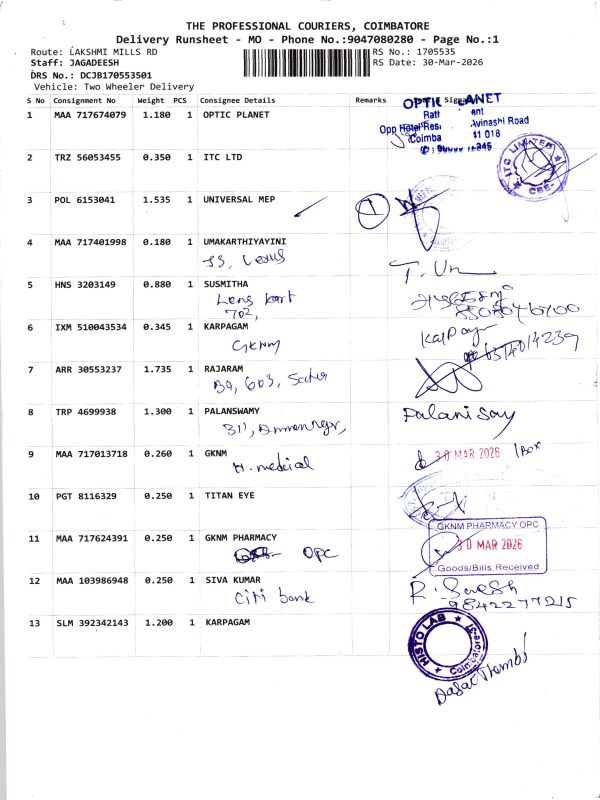 THE PROFESSIONAL COURIERS, COIMBATORE
Delivery Runsheet - MO - Phone No.:9047080280 - Page No.:1
Route: LAKSHMI MILLS RD
RS No.: 1705535
Staff: JAGADEESH
RS Date: 30-Mar-2026
DRS No.: DCJB170553501
Vehicle: Two Wheeler Delivery
S No Consignment No Weight PCS Consignee Details Remarks
1 MAA 717674079 1.180 1 OPTIC PLANET
OPTIC LANET
Opp Hotel Avinashi Road
2 TRZ 56053455 0.350 1 ITC LTD
ITC LIMITED
3 POL 6153041 1.535 1 UNIVERSAL MEP
1
4 MAA 717401998 0.180 1 UMAKARTHIYAYINI
5 HNS 3203149 0.880 1 SUSMITHA
Lens kart
702,
6 IXM 510043534 0.345 1 KARPAGAM
GKNM
Karpagam
7 ARR 30553237 1.735 1 RAJARAM
B9, 603,
8 TRP 4699938 1.300 1 PALANSWAMY
311,
Palanisamy
9 MAA 717013718 0.260 1 GKNM
H. medical
30 MAR 2026 1 Box
10 PGT 8116329 0.250 1 TITAN EYE
11 MAA 717624391 0.250 1 GKNM PHARMACY
OPC
GKNM PHARMACY OPC
30 MAR 2026
Goods/Bills Received
12 MAA 103986948 0.250 1 SIVA KUMAR
Citi bank
R. Suresh
9842277215
13 SLM 392342143 1.200 1 KARPAGAM
HISTO LAB